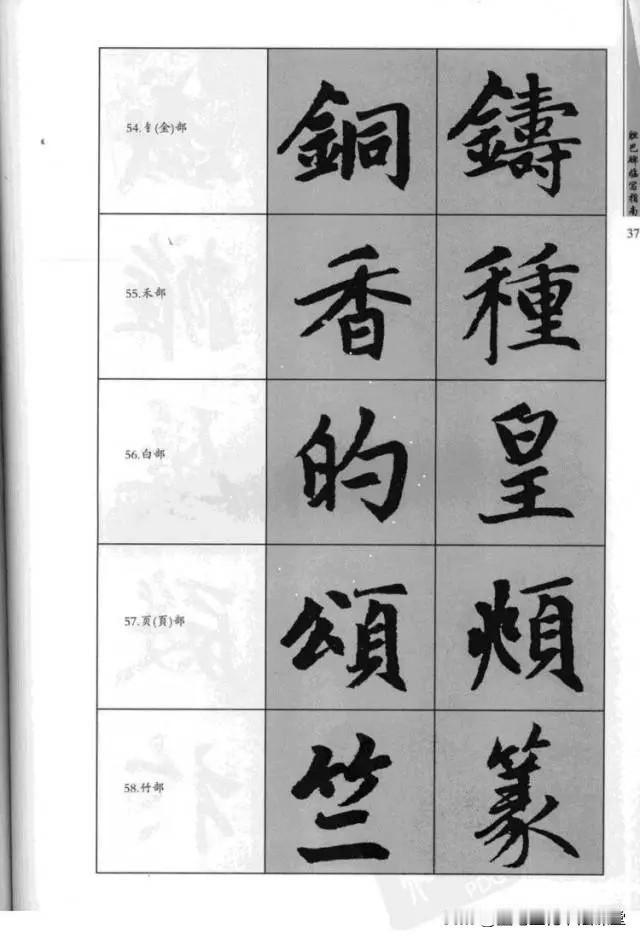 胆巴碑临写指南
37
54.钅(金)部 銅 鑄
55.禾部 香 種
56.白部 的 皇
57.页(頁)部 頌 頫
58.竹部 竺 篆
PDG